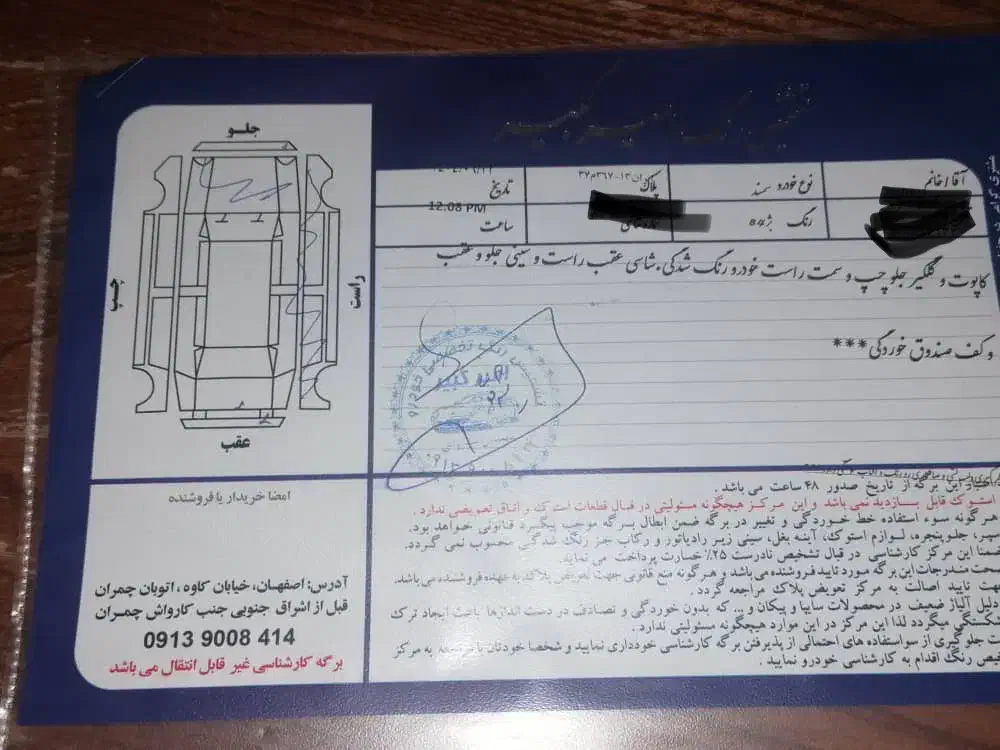 آقا/خانم
نوع خودرو سمند
پلاک
تاریخ
رنگ بژ 84
ساعت 12:08 PM
کاپوت و گلگیر جلو چپ و سمت راست خودرو رنگ شدگی، شاسی عقب راست و سینی جلو و عقب
و کف صندوق خوردگی ***
جلـو
چپ
راست
عقب
امضا خریدار یا فروشنده
آدرس: اصفهان، خیابان کاوه، اتوبان چمران
قبل از اشراق جنوبی جنب کارواش چمـران
0913 9008 414
برگه کارشناسی غیر قابل انتقال می باشد
این برگه از تاریخ صدور ۴۸ ساعت می باشد .
استوک قابل بـازدید نمی باشد و این مرکز هیچگونه مسئولیتی در قبال قطعات استوک و اتاق تعویضی ندارد .
هرگونه سوء استفاده خط خوردگی و تغییر در برگه ضمن ابطال برگه موجب پیگرد قانونی خواهد بود.
سپر، جلوپنجره، لـوازم استوک، آینه بغل، سینی زیـر رادیاتور و رکاب جـز رنگ شدگی محسوب نمی گردد.
ضمنا این مرکز کارشناسی در قبال تشخیص نادرست ۲۵٪ خسارت پرداخت می نماید.
صحت مندرجات این برگه مورد تایید فروشنده می باشد و هرگونه منع قانونی جهت تعویض پلاک به عهده فروشنده می باشد.
جهت تایید اصالت به مرکز تعویض پلاک مراجعه گردد .
دلیل آلیاژ ضعیف در محصولات سایپا و پیکان و... که بدون خوردگی و تصادف در دست اندازها باعث ایجاد ترک
شکستگی میگردد لذا این مرکز در این موارد هیچگونه مسئولیتی ندارد .
جلو گیری از سواستفاده های احتمالی از پذیرفتن برگه کارشناسی خودداری نمایید و شخصا خودتان با مراجعه به مرکز
رنگ اقدام به کارشناسی خودرو نمایید .